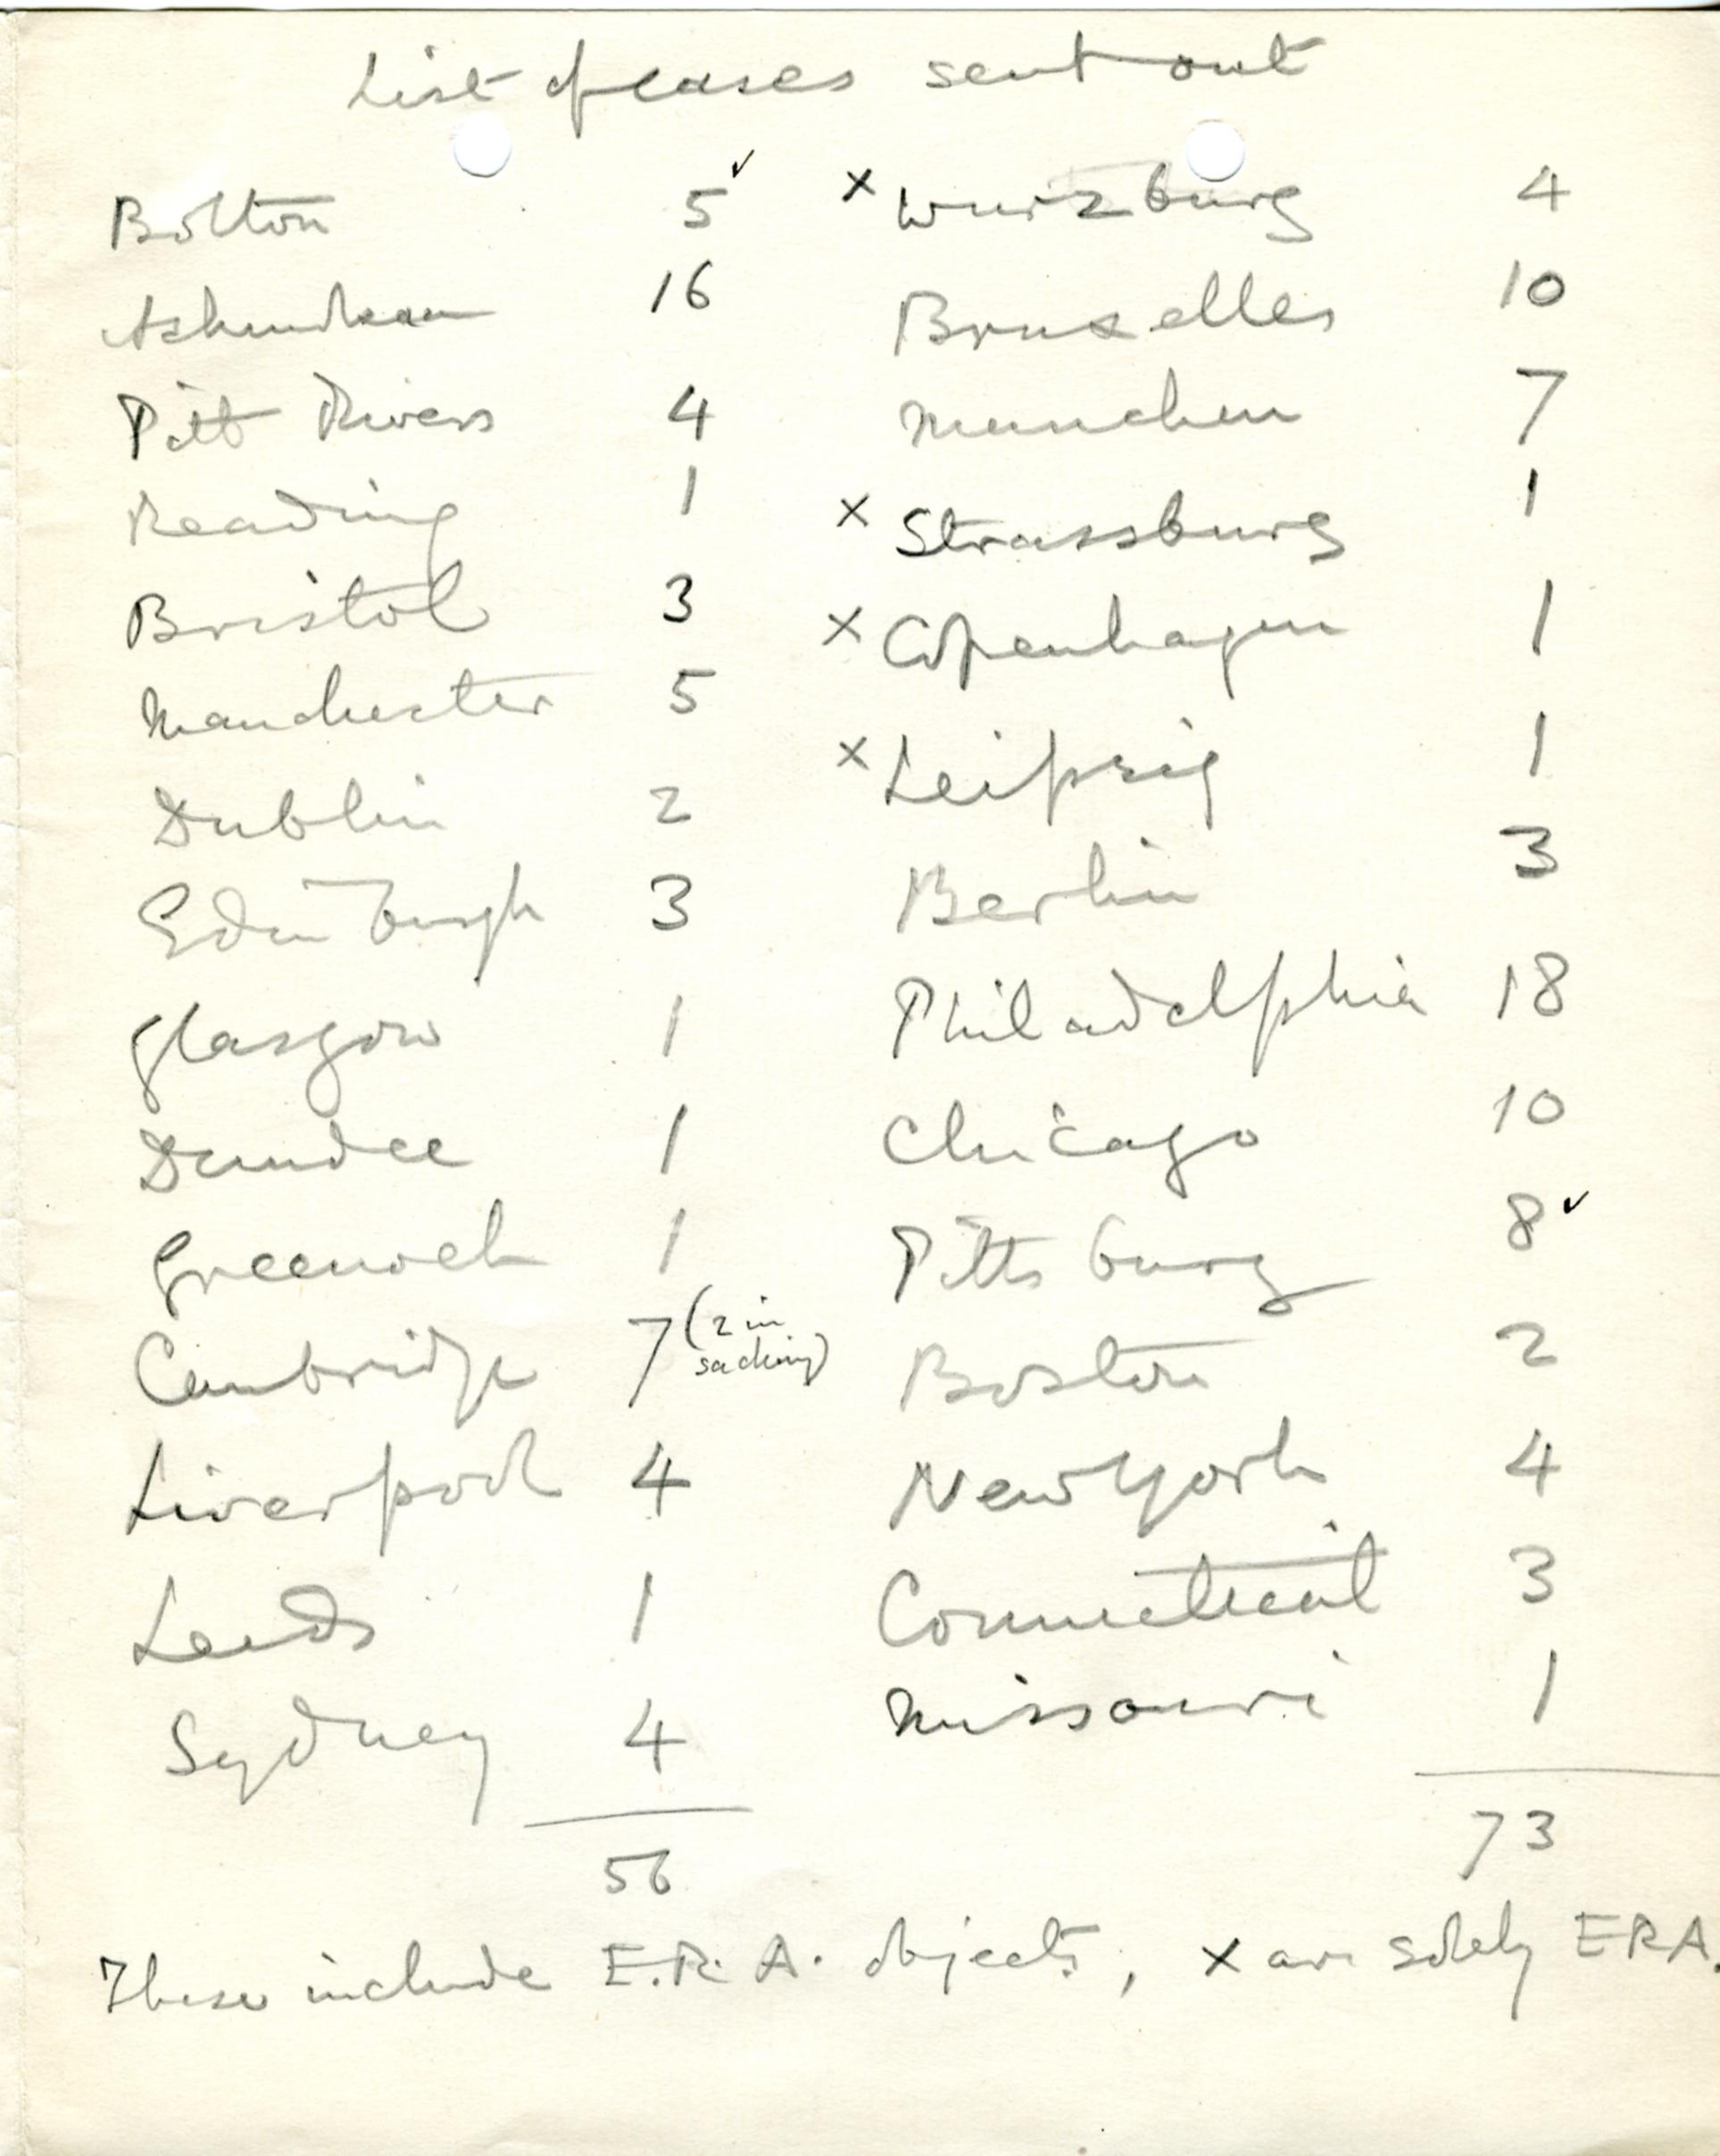 List of cases sent out
Bolton 5 ✓
Ashmolean 16
Pitt Rivers 4
Reading 1
Bristol 3
Manchester 5
Dublin 2
Edinburgh 3
Glasgow 1
Dundee 1
Greenock 1
Cambridge 7 (2 in
sacking)
Liverpool 4
Leeds 1
Sydney 4
58
x Wurzburg 4
Bruxelles 10
Munchen 7
x Strassburg 1
x Copenhagen 1
x Leipzig 1
Berlin 3
Philadelphia 18
Chicago 10
Pittsburg 8 ✓
Boston 2
New York 4
Connecticut 3
Missouri 1
73
These include E.R.A. objects, x are solely ERA.